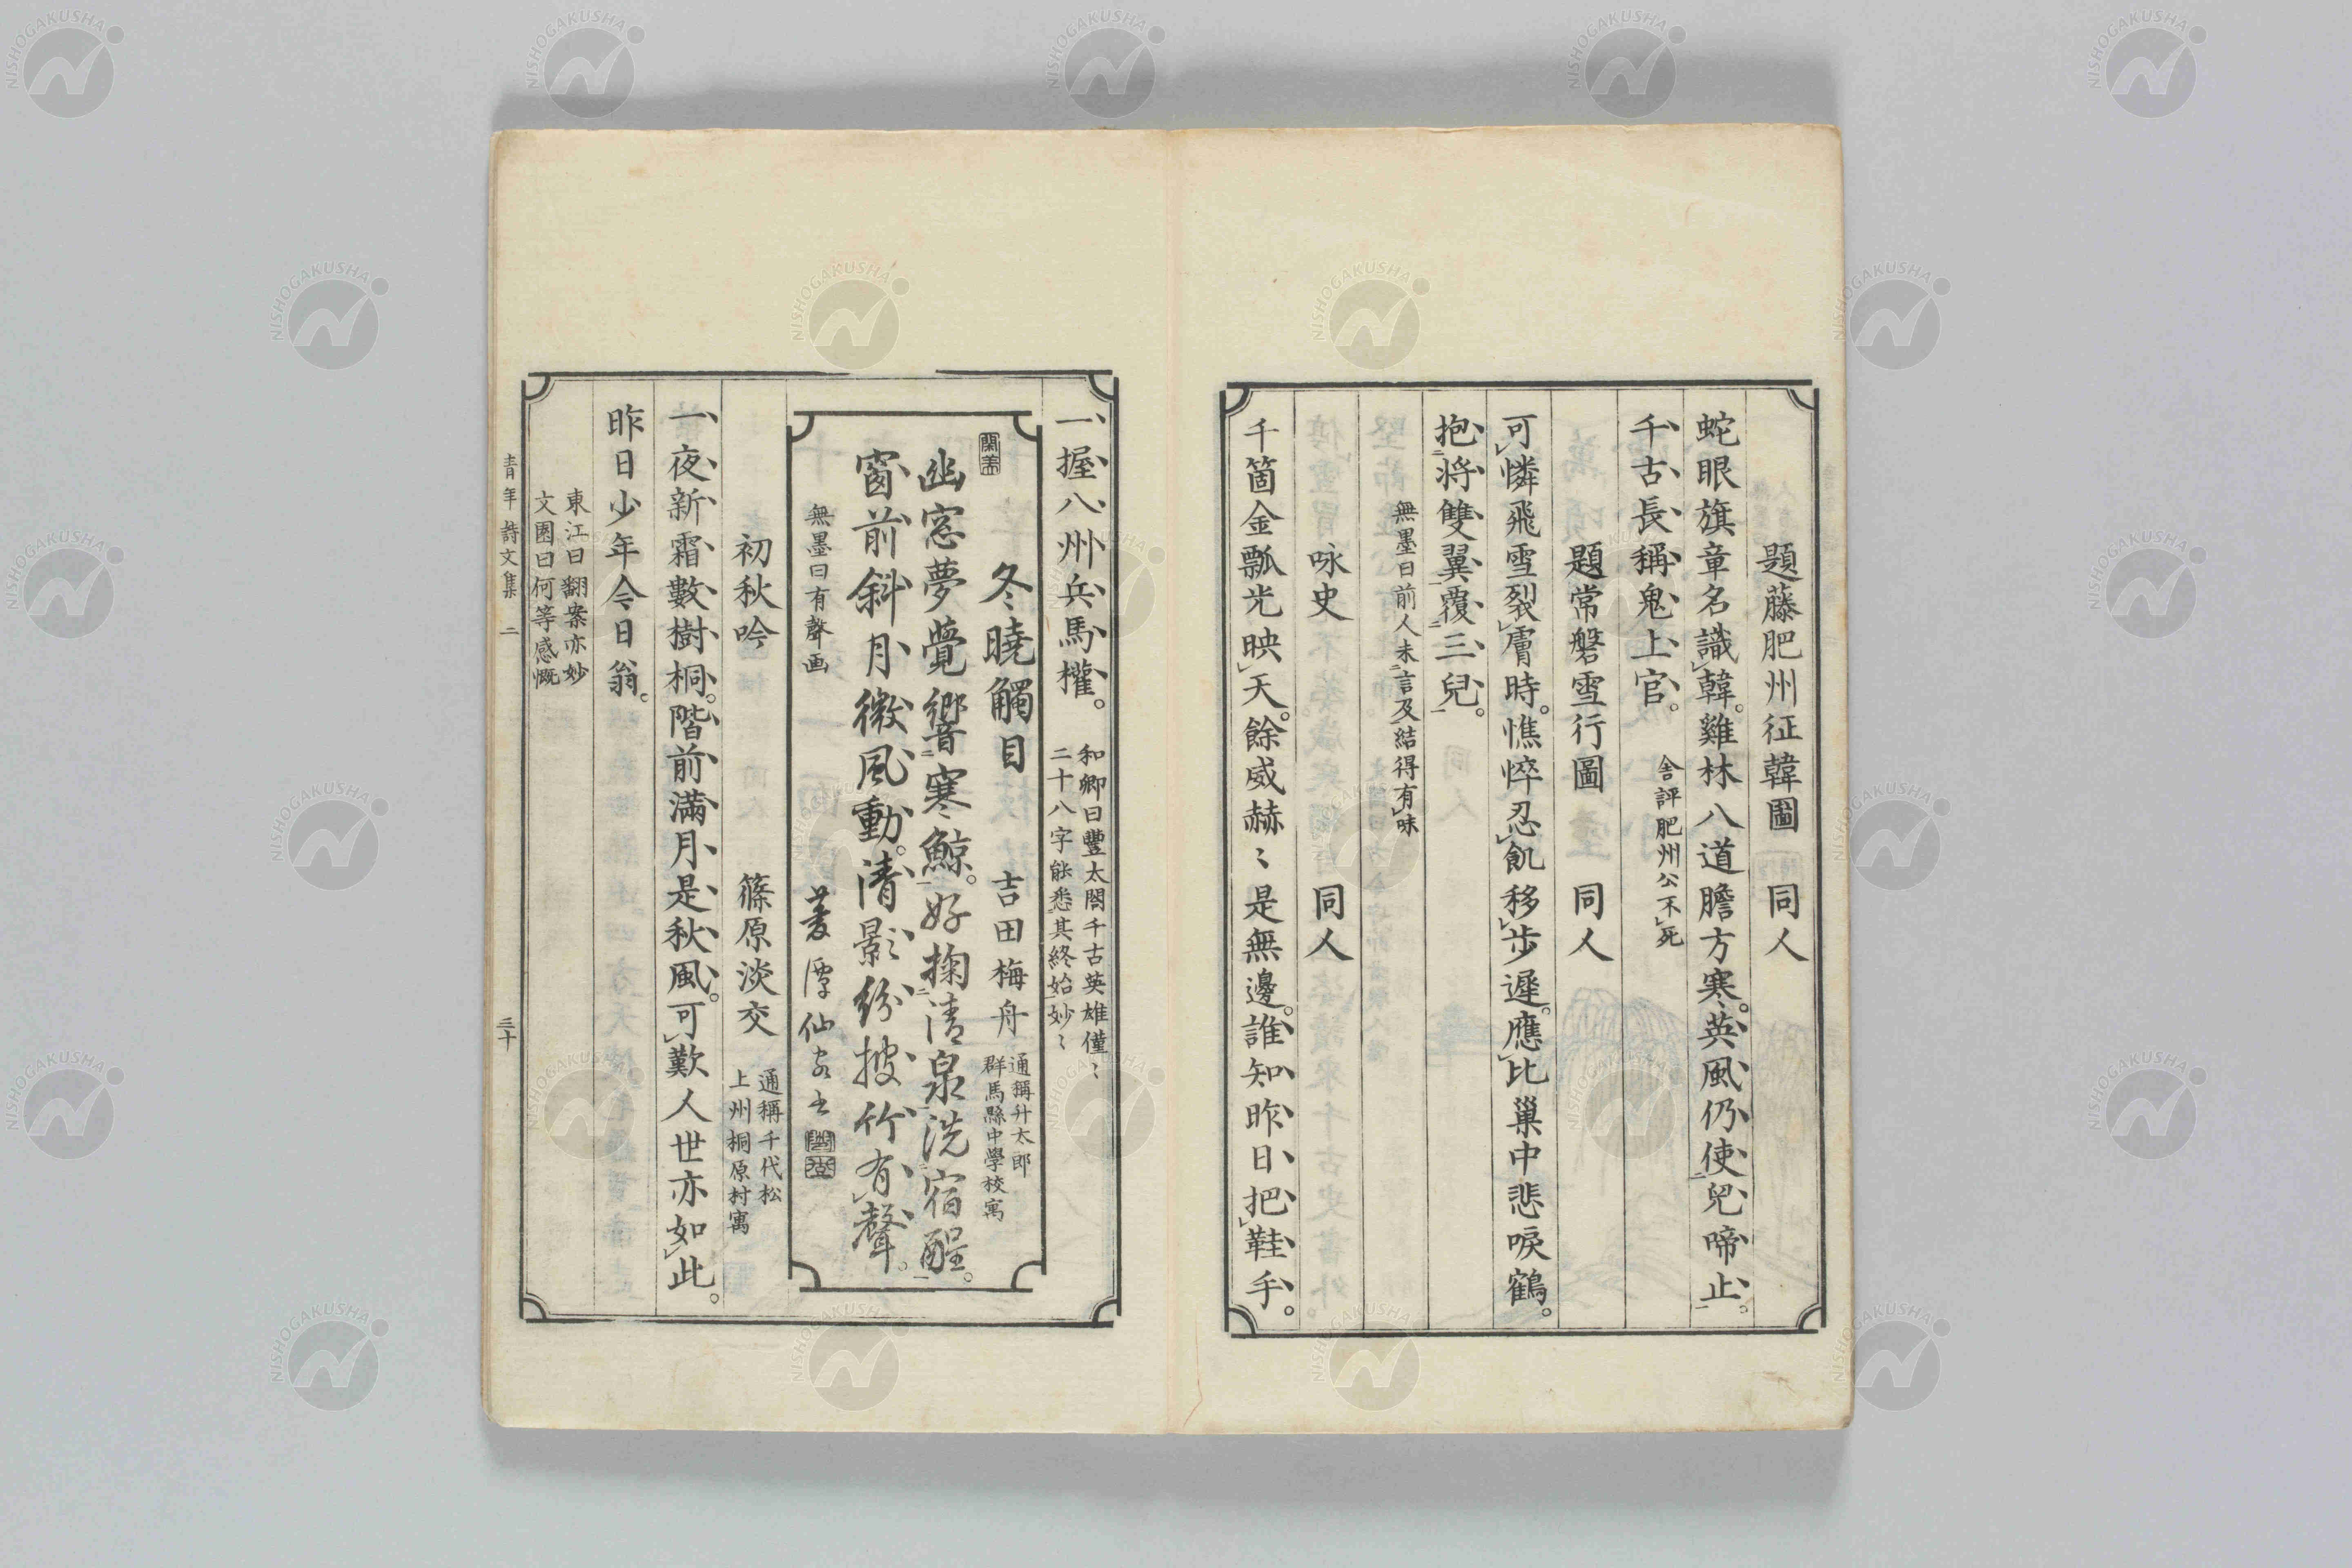 題藤肥州征韓圖　同人
蛇眼旗章名識韓。雞林八道膽方寒。英風仍使兒啼止。
千古長稱鬼上官。
舍評肥州公不死
題常磐雪行圖　同人
可憐飛雪裂膚時。憔悴忍飢移步遲。應比巢中悲唳鶴。
抱將雙翼覆三兒。
無墨曰前人未言及結得有味
咏史　同人
千箇金瓢光映天。餘威赫〻是無邊。誰知昨日把鞋手。
一握八州兵馬權。
和卿曰豐太閤千古英雄僅〻
二十八字能悉其終始妙〻
冬曉觸目　吉田梅舟
通稱升太郎
群馬縣中學校寓
幽窓夢覺響寒鯨。好掬清泉洗宿醒。
窗前斜月微風動。清影紛披竹有聲。
無墨曰有聲画
初秋吟　篠原淡交
通稱千代松
上州桐原村寓
一夜新霜數樹桐。階前滿月是秋風。可歎人世亦如此。
昨日少年今日翁。
東江曰翻案亦妙
文圃曰何等感慨
青年詩文集　二　三十
NISHOGAKUSHA